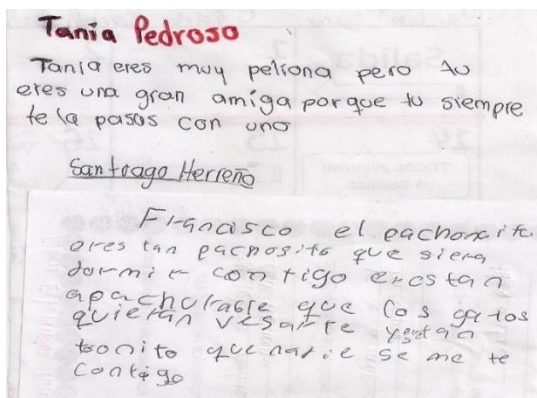 Tania Pedroso
Tania eres muy peliona pero tu
eres una gran amiga porque tu siempre
te la pasas con uno
Santiago Herreño
Francisco el
eres tan pachosito que siera
dormir contigo eres tan
apachurable que los gatos
quieran vesarte y estan
bonito que nadie se me te
contigo